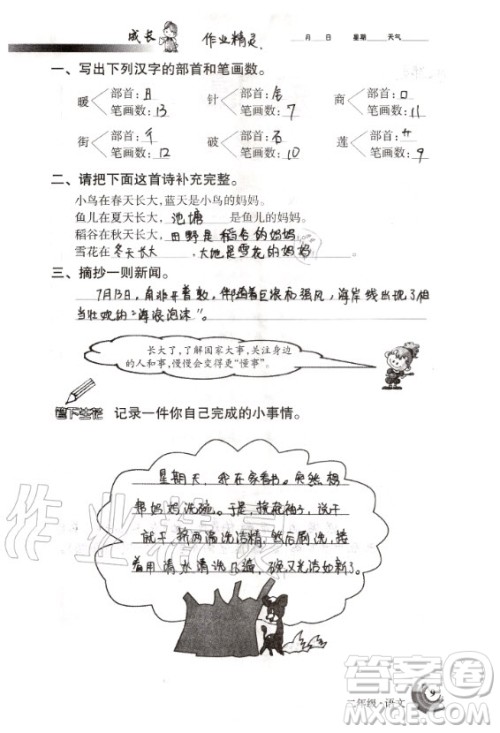 成长 作业精灵
月 日 星期 天气
一、写出下列汉字的部首和笔画数。
暖 部首:日 笔画数:13 针 部首:钅 笔画数:7 商 部首:口 笔画数:11
街 部首:彳 笔画数:12 破 部首:石 笔画数:10 莲 部首:艹 笔画数:9
二、请把下面这首诗补充完整。
小鸟在春天长大,蓝天是小鸟的妈妈。
鱼儿在夏天长大,池塘是鱼儿的妈妈。
稻谷在秋天长大,田野是稻谷的妈妈。
雪花在冬天长大,大地是雪花的妈妈。
三、摘抄一则新闻。
7月13日,南非开普敦,伴随着巨浪和强风,海岸线出现了相
当壮观的“海浪泡沫”。
长大了,了解国家大事,关注身边
的人和事,慢慢会变得更“懂事”。
笔下生花 记录一件你自己完成的小事情。
星期天,我在家看书。突然想
帮妈妈洗碗。于是,挽起袖子,说干
就干,挤两滴洗洁精,然后刷洗,接
着用清水清洗几遍,碗又光洁如新了。
作业精灵
二年级·语文 9
答案圈
MXQE.COM